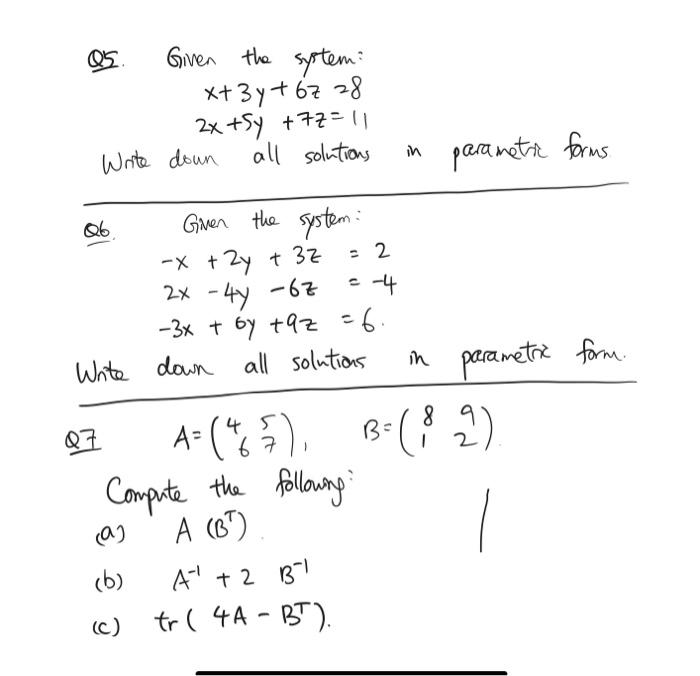 Q5. Given the system:
x+3y+6z=8
2x+5y+7z=11
Write down all solutions in parametric forms
Q6. Given the system:
-x+2y+3z=2
2x-4y-6z=-4
-3x+6y+9z=6.
Write down all solutions in parametric form.
Q7 A=(4 5
6 7), B=(8 9
1 2)
Compute the following:
(a) A(Bᵀ).
(b) A⁻¹+2 B⁻¹
(c) tr(4A-Bᵀ).